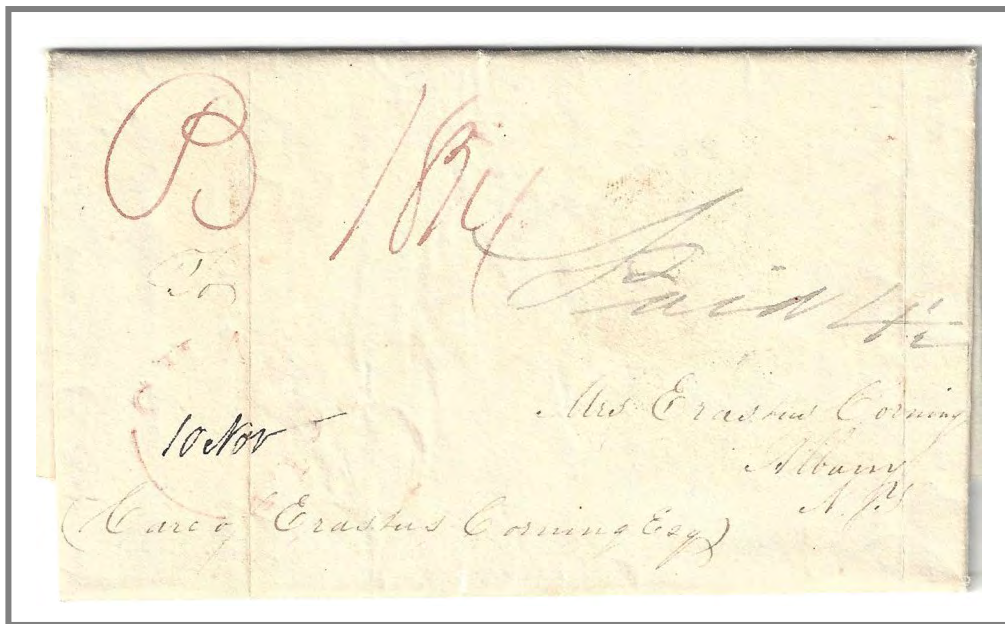 P 18 3/4
To
Paid 4 1/2
Mrs Erastus Corning
Albany
N. Y.
10 Nov
(Care of Erastus Corning Esq)